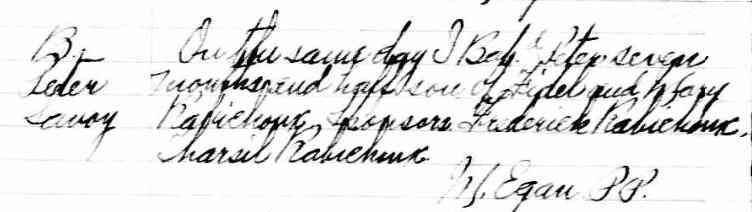 B. On the same day I Bap.d Peter seven
Peter months and half son of Fidel and Mary
Savoy Rabichouk Sponsors Frederick Rabichouk,
Marsil Rabichouk
M. Egan P.P.